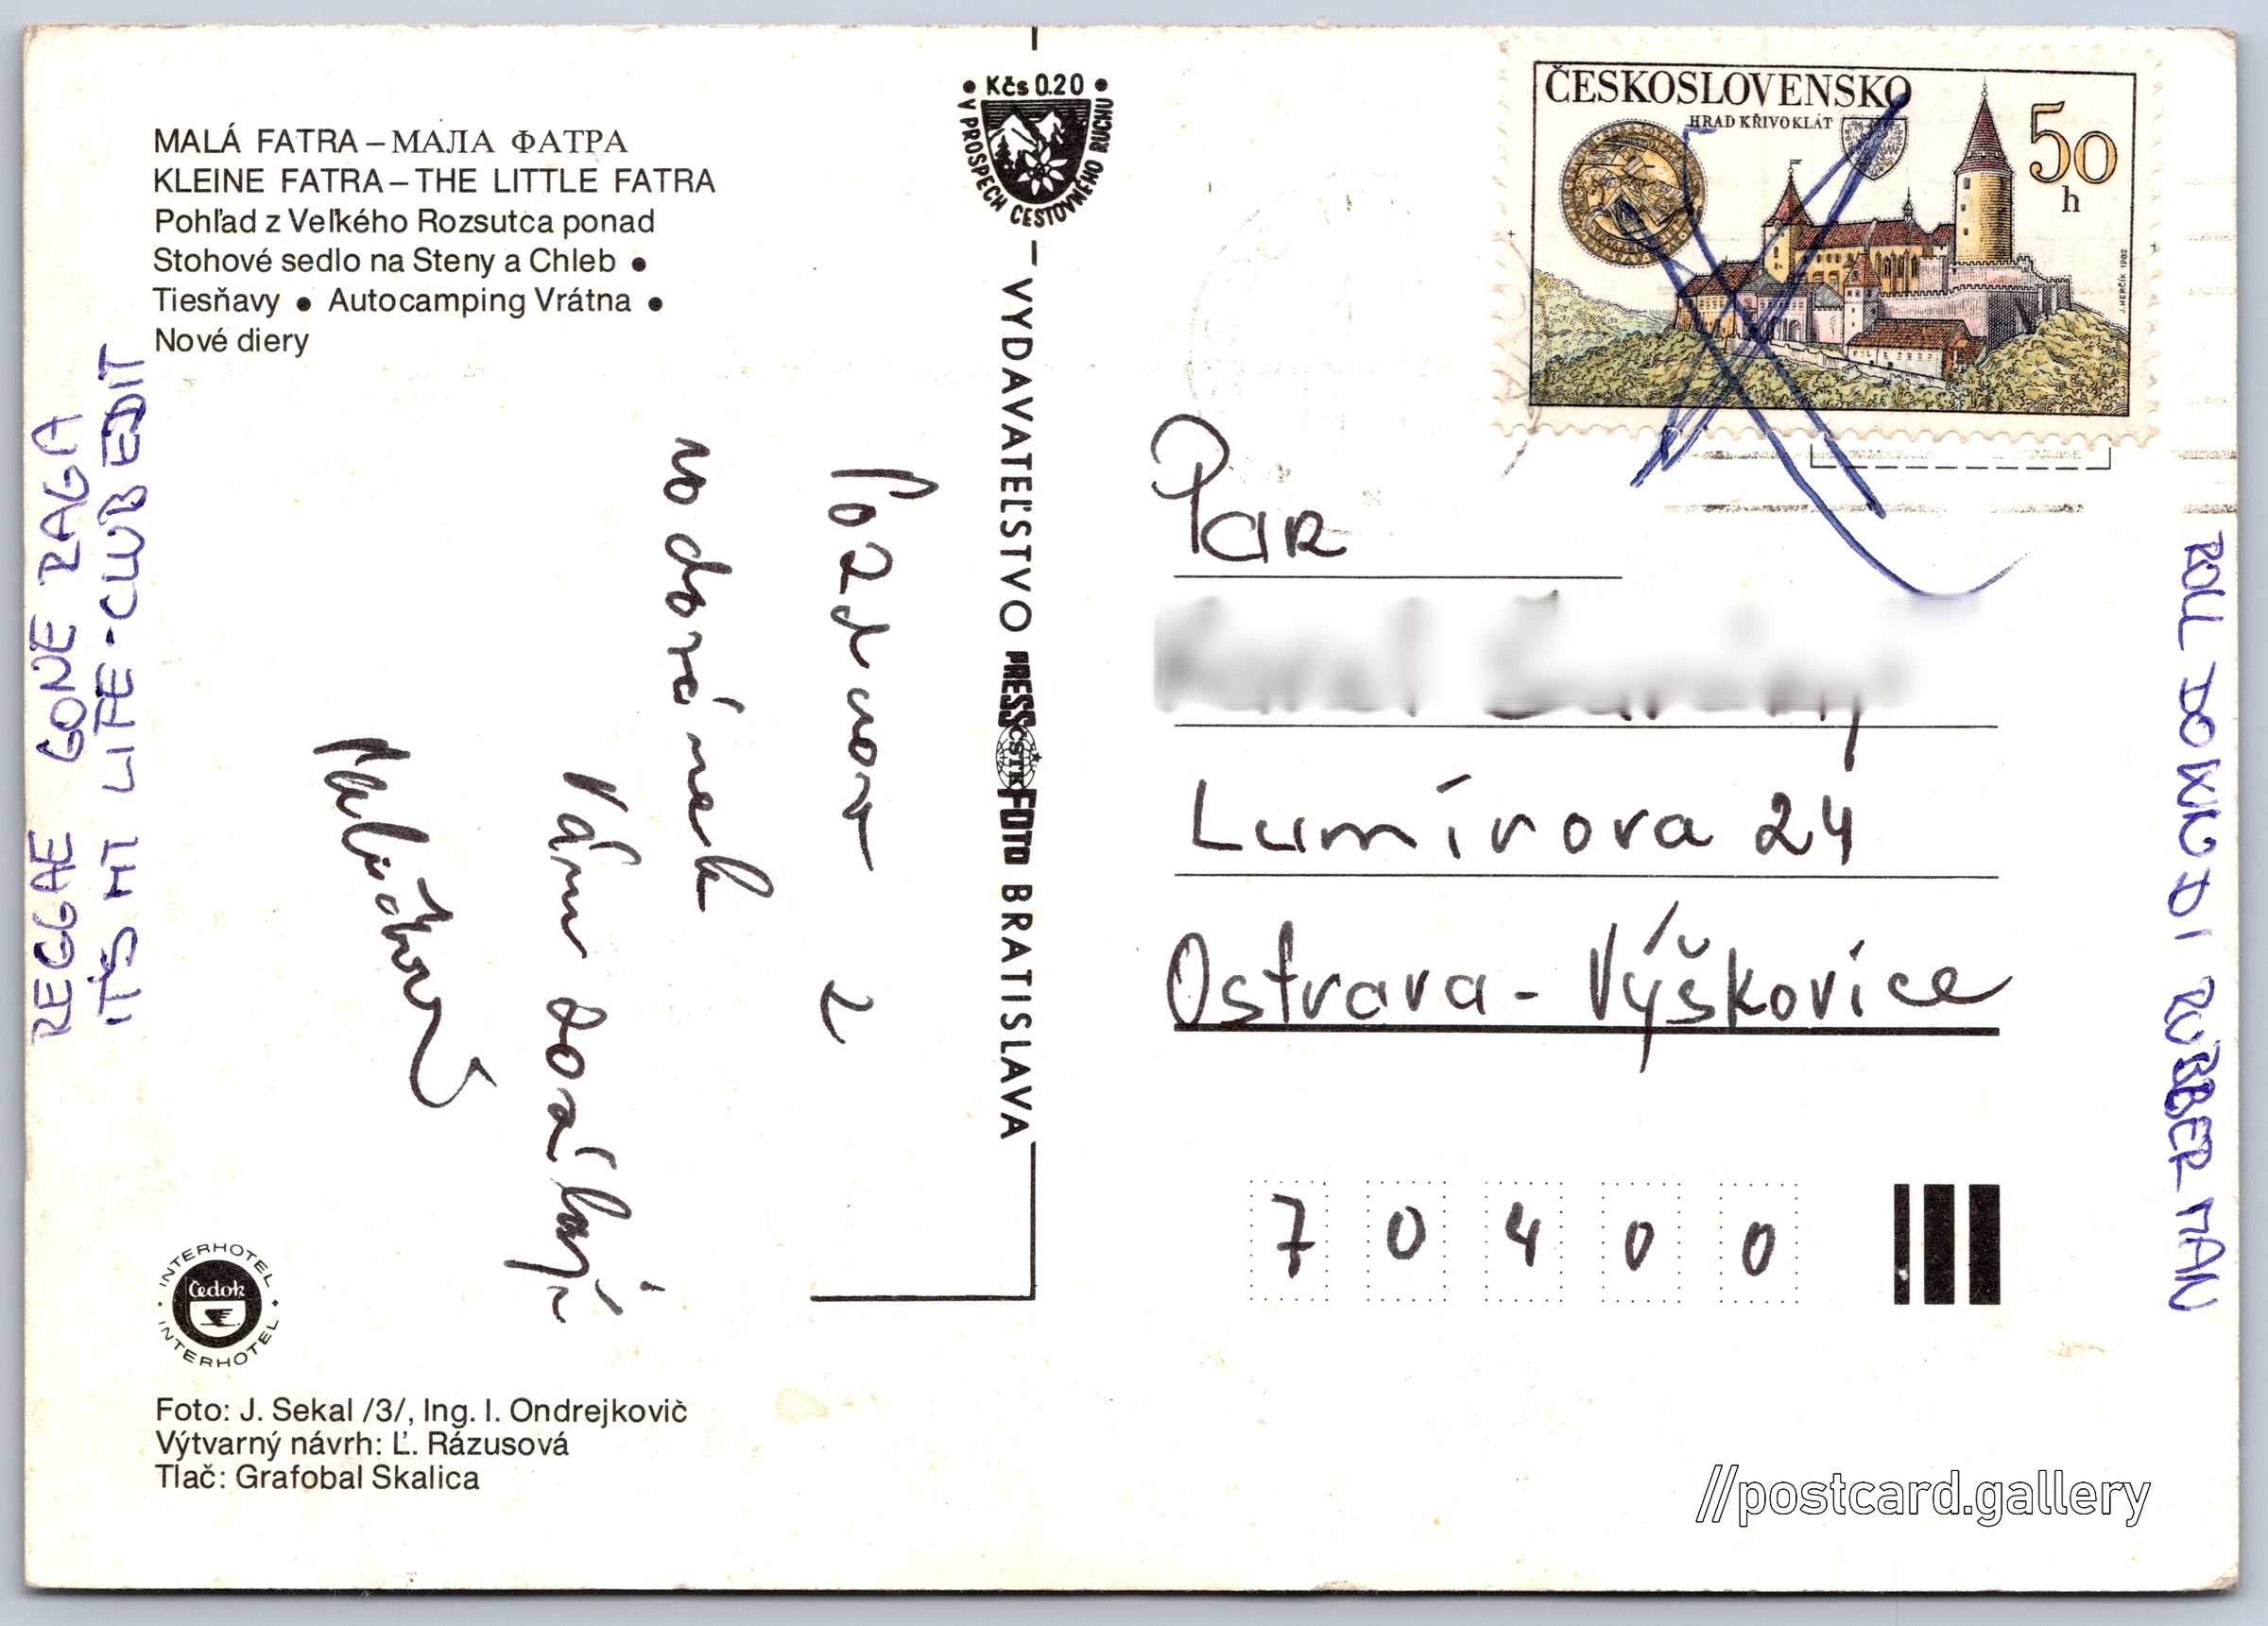 MALÁ FATRA – МАЛА ФАТРА
KLEINE FATRA – THE LITTLE FATRA
Pohľad z Veľkého Rozsutca ponad
Stohové sedlo na Steny a Chleb •
Tiesňavy • Autocamping Vrátna •
Nové diery
REGGAE GONE RAGA
IT'S MT LIFE - CLUB EDIT
Pozdrav z
Vám
INTERHOTEL
Čedok
INTERHOTEL
Foto: J. Sekal /3/, Ing. I. Ondrejkovič
Výtvarný návrh: Ľ. Rázusová
Tlač: Grafobal Skalica
• Kčs 0.20 •
V PROSPECH CESTOVNÉHO RUCHU
VYDAVATEĽSTVO PRESSFOTO BRATISLAVA
ČSTK
ČESKOSLOVENSKO
HRAD KŘIVOKLÁT
50
h
J. HERČÍK 1982
Lumírova 24
Ostrava - Výškovice
70400
RUBBER MAN
//postcard.gallery